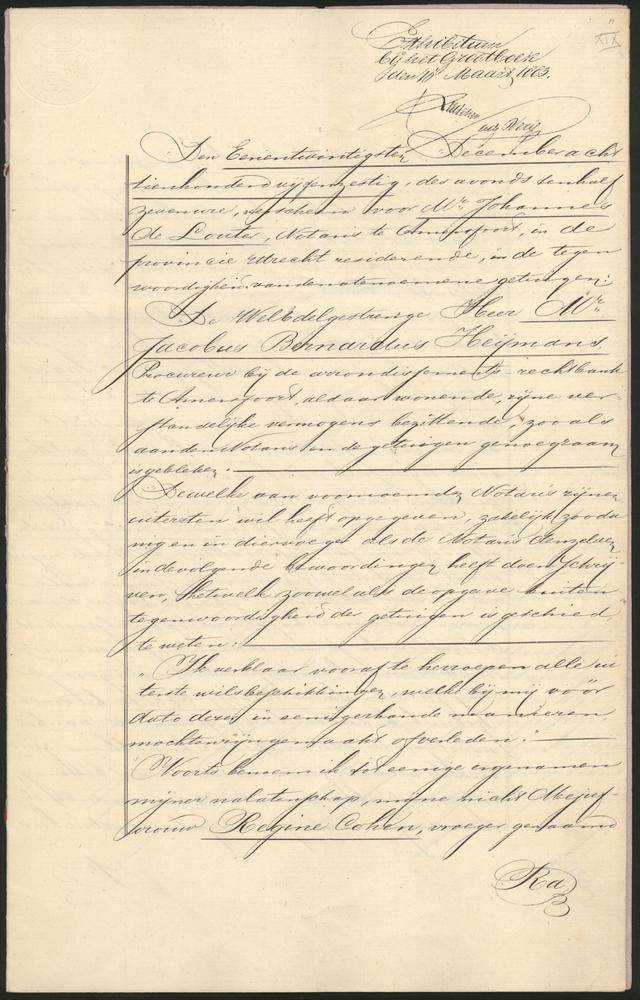 XIX
Exhibitum
bij het Grootboek
den 18 Maart 1863.
Den Eenentwintigsten December acht
tienhonderd vijfenzestig, des avonds ten half
zeven ure, verscheen voor Mr. Johannes
de Louter, Notaris te Amersfoort, in de
provincie Utrecht residerende, in de tegen
woordigheid van de na te noemene getuigen:
De WelEdelgestrenge Heer Mr
Jacobus Bernardus Heijmans,
Procureur bij de arrondissements-rechtbank
te Amersfoort, aldaar wonende, zijne ver-
standelijke vermogens bezittende, zoo als
aan den Notaris en de getuigen genoegzaam
is gebleken.
Dewelke aan voornoemden Notaris zijnen
uitersten wil heeft opgegeven, zakelijk zooda
nig en in dier voege als de Notaris denzelven
in de volgende bewoordingen heeft doen schrij-
ven, hetwelk zoowel als de opgave buiten
tegenwoordigheid der getuigen is geschied,
te weten:
"Ik verklaar vooraf te herroepen alle ui
terste wilsbeschikkingen, welke bij mij vóór
dato dezes in eenigerhande manieren
mochten zijn gemaakt of verleden."
Voorts benoem ik tot eenige erfgenamen
mijner nalatenschap, mijne nicht Mejuf-
vrouw Regine Cohen, vroeger genaamd
Ra